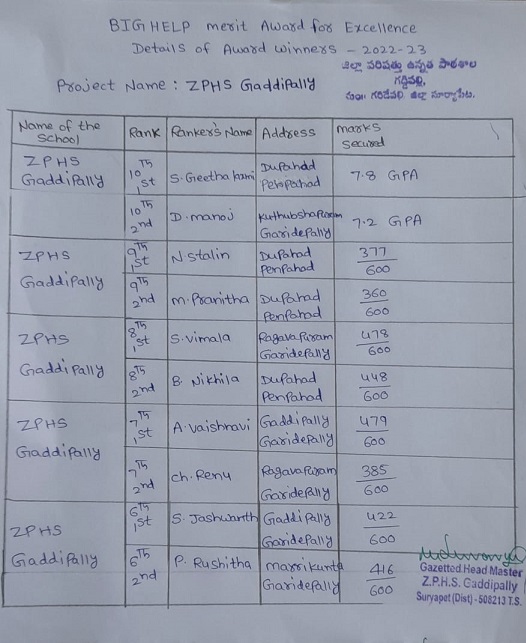 BIGHELP merit Award for Excellence
Details of Award Winners - 2022-23
జిల్లా పరిషత్తు ఉన్నత పాఠశాల
గడ్డిపల్లి,
Project Name : ZPHS Gaddipally
మండ: గరిడేపల్లి జిల్లా సూర్యాపేట.
Name of the School Rank Ranker's Name Address marks secured
ZPHS Gaddipally 10th 1st S. Geetha laxmi Dupahad Penpahad 7.8 GPA
10th 2nd D. manoj Kuthubshapuram Garidepally 7.2 GPA
ZPHS Gaddipally 9th 1st N. stalin Dupahad Penpahad 377/600
9th 2nd M. Pranitha Dupahad Penpahad 360/600
ZPHS Gaddipally 8th 1st S. vimala Ragavapuram Garidepally 478/600
8th 2nd B. Nikhila Dupahad Penpahad 448/600
ZPHS Gaddipally 7th 1st A. vaishnavi Gaddipally Garidepally 479/600
7th 2nd ch. Renu Ragavapuram Garidepally 385/600
ZPHS Gaddipally 6th 1st S. Jashwanth Gaddipally Garidepally 422/600
6th 2nd P. Rushitha marrikunta Garidepally 416/600
Gazetted Head Master
Z.P.H.S. Gaddipally
Suryapet (Dist) - 508213 T.S.